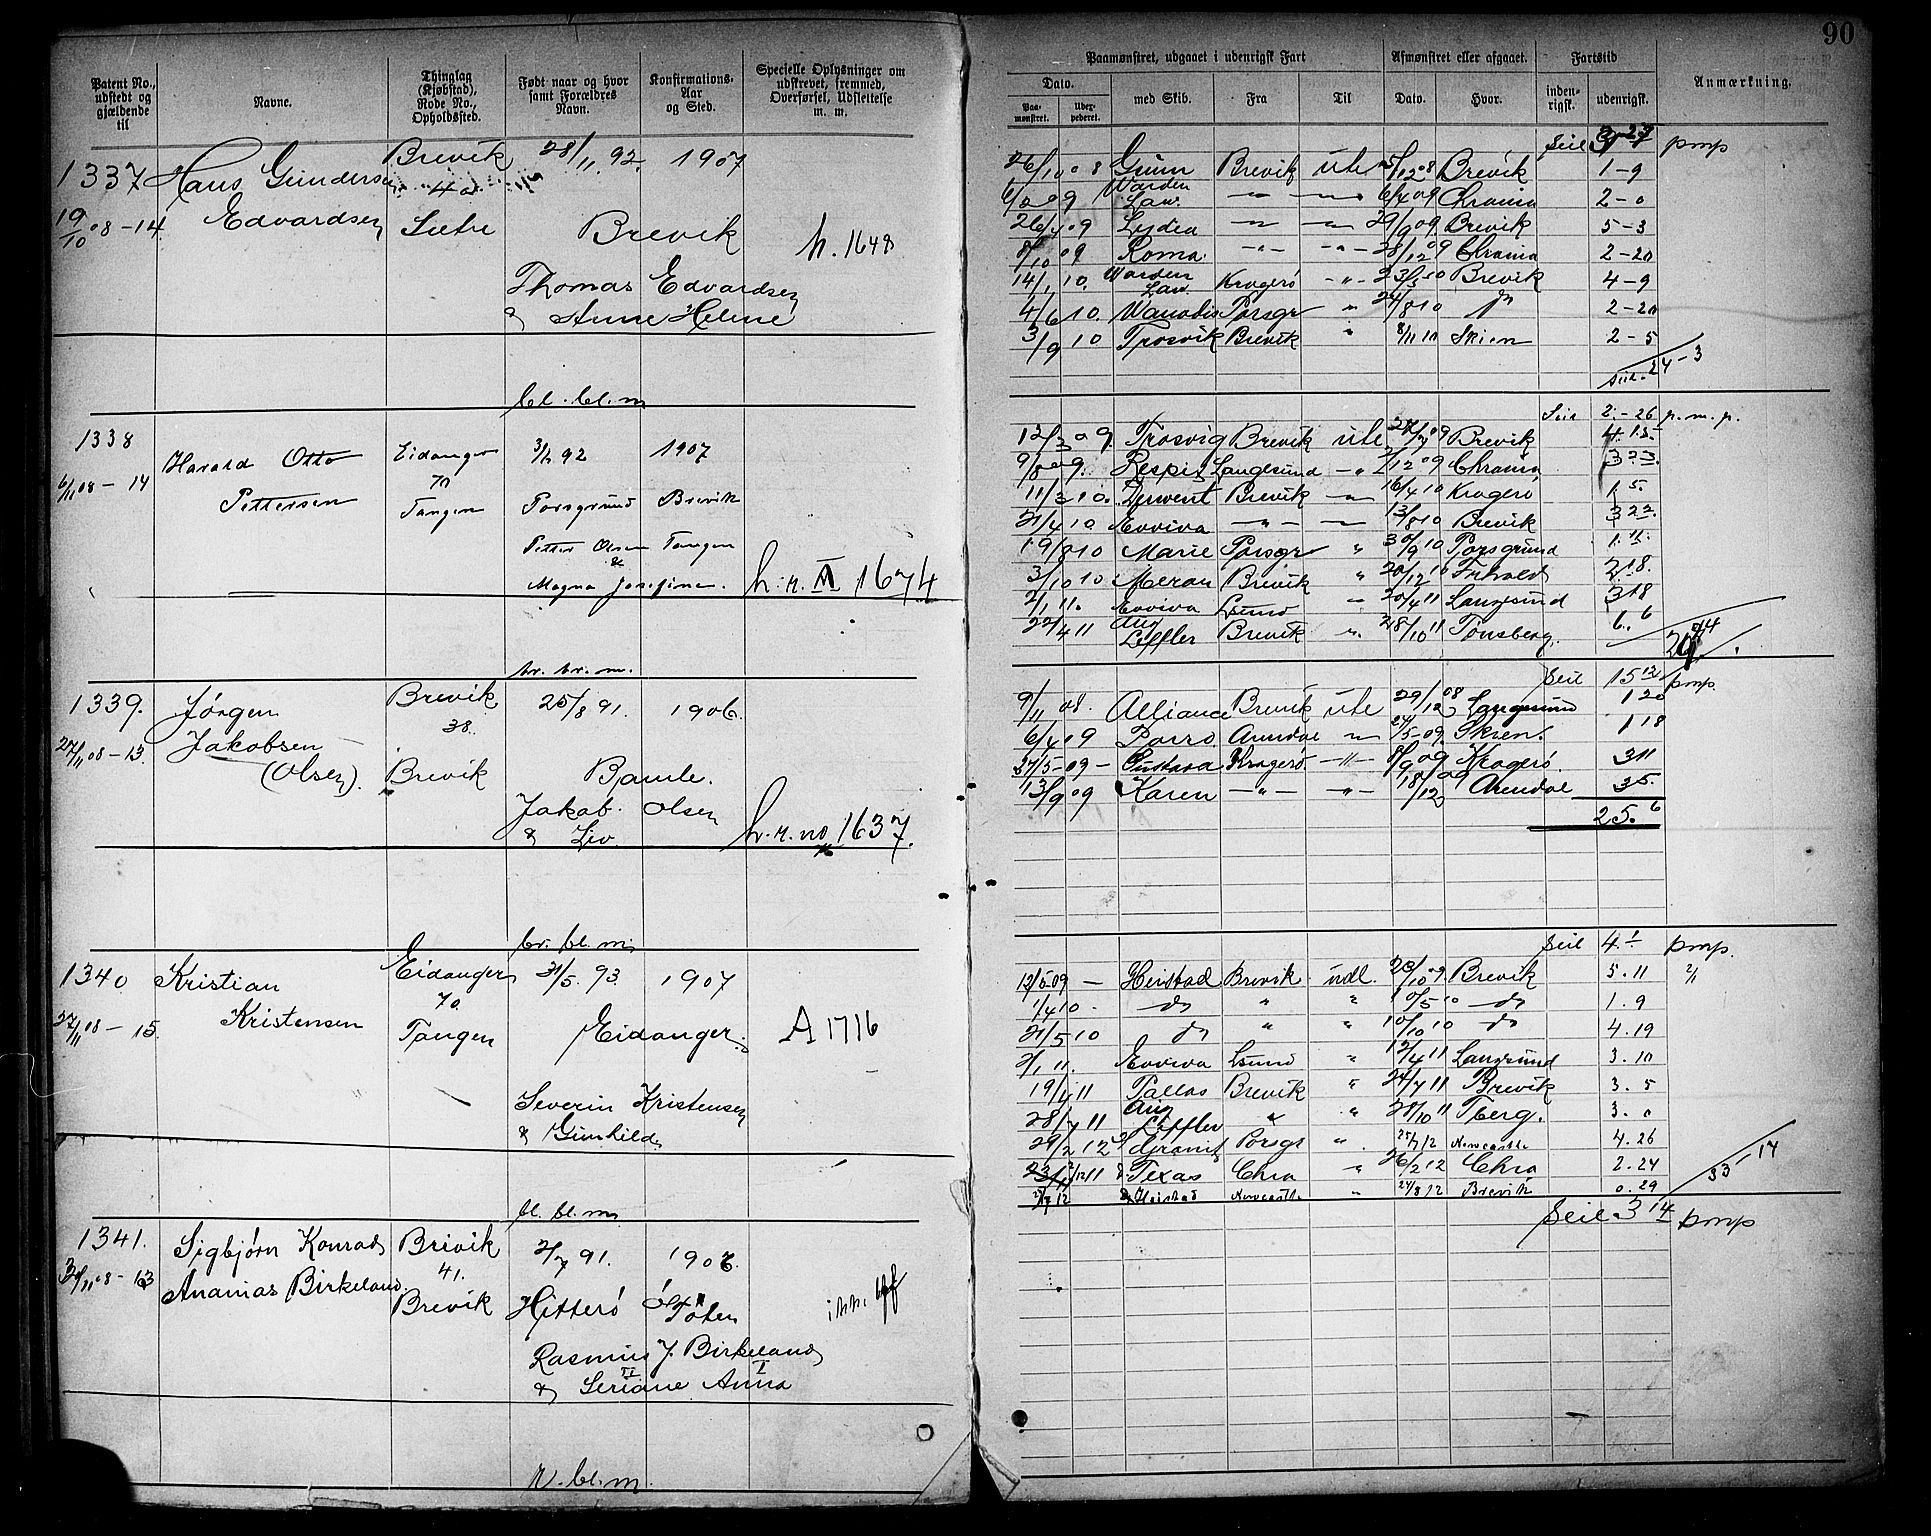 90
Patent No., udstedt og gjældende til
Navne.
Thinglag (Kjøbstad), Rode No., Opholdssted.
Født naar og hvor samt Forældres Navn.
Konfirmations-Aar og Sted.
Specielle Oplysninger om udskrevet, fremmed, Overførsel, Udslettelse m. m.
Paamønstret, udgaaet i udenrigsk Fart
Afmønstret eller afgaaet.
Fartstid
Anmærkning.
Dato.
med Skib.
Fra
Til
Dato.
Hvor.
inden-rigsk.
udenrigsk.
Paa-mønstret.
1337 Hans Gundersen Brevik 28/11 92. 1907
40
19/10 08 - 14. Edvardsen Brevik h. 1648
Thomas Edvardsen
& Anne Helene
bl. bl. m
1338
Harald Otto Eidanger 1907
70
6/11 08 - 14 Pettersen Tangen Porsgrund Brevik
Petter Olsen Tangen
&
Magna Josefine.
1674
br. br. m.
1339. Jørgen Brevik 25/8 91. 1906.
38.
27/11 08 - 13. Jakobsen
(Olsen). Brevik Bamle.
Jakob Olsen
& Liv. h. r. no 1637.
br. bl. m.
1340 Kristian Eidanger 31/5. 93. 1907
70.
27/11 08 - 15. Kristensen Tangen Eidanger. A 1716
Severin Kristensen
& Gunhild
bl. bl. m
1341. Sigbjørn Konrad Brevik 91. 1906.
41.
Ananias Birkeland Brevik Hitterø
Rasmus J. Birkeland
& Seriane Anna
bl. m.
Seil pmp
26/10 08 Gunn Brevik ute 5/12 08 Brevik 1-9
Warden Law. 6/4 09 Chrania 2-0
26/4 09 Lydia 29/9 09. Brevik 5-3
8/10 09 Roma 28/12 09 Chrania 2-20
14/1 10. Warden Law. Kragerø Brevik 4-9
4/6 10. Porsgr 24/8 10 2-20
3/9 10 Trosvik Brevik 8/11 10 Skien 2-5
Seil. 24-3
Seil 2.-26 p.m.p.
12/3 09. Trosvig Brevik ute Brevik 4.15.
9/8 09. Langesund 12 09 Chrania 3 23.
11/3 10. Derwent Brevik 16/4 10 Kragerø 1 5.
21/4 10 Evviva 13/8 10 Brevik 3 22.
19/8 10 Marie Porsgr 30/9 10 Porsgrund 1.11.
3/10 10 Meran Brevik 20/12 10 2 18.
2/1 11. Evviva Lsund 20/4 11 Langesund 3 18
22/4 11 Aug Leffler Brevik 28/10 11 Tønsberg. 6. 6
Seil 15 12 pmp.
9/11 08. Alliance Brevik ute 29/12 08 Langesund 1 20
6/4 09 Porro Arendal 24/5-09. Skien. 1 18
27/5-09 - Gustava Kragerø 8/9 09 Kragerø. 3 11
13/9 09 Karen 18/12 09 Arendal 3 5.
25. 6
Seil 4.1 pmp.
12/5-09 - Heistad Brevik udl. 20/10 09. Brevik 5.11
1/4 10 - do 10/5 10 do 1.9
21/5 10 do 10/10 10 do 4.19
2/1 11. Evviva Lsund 12/4 11 Langesund 3.10
19/4 11 Pallas Brevik 24/7 11 Brevik 3.5
28/7 11 Aug Leffler 28/10 11 Tberg. 3.0
29/2 12 Porsgr Newcastle 4.26
Texas Chra 26/2 12 Chra 2.24
33-14
Heistad Newcastle 24/8 12 Brevik 0.29
Seil 3 14 pmp